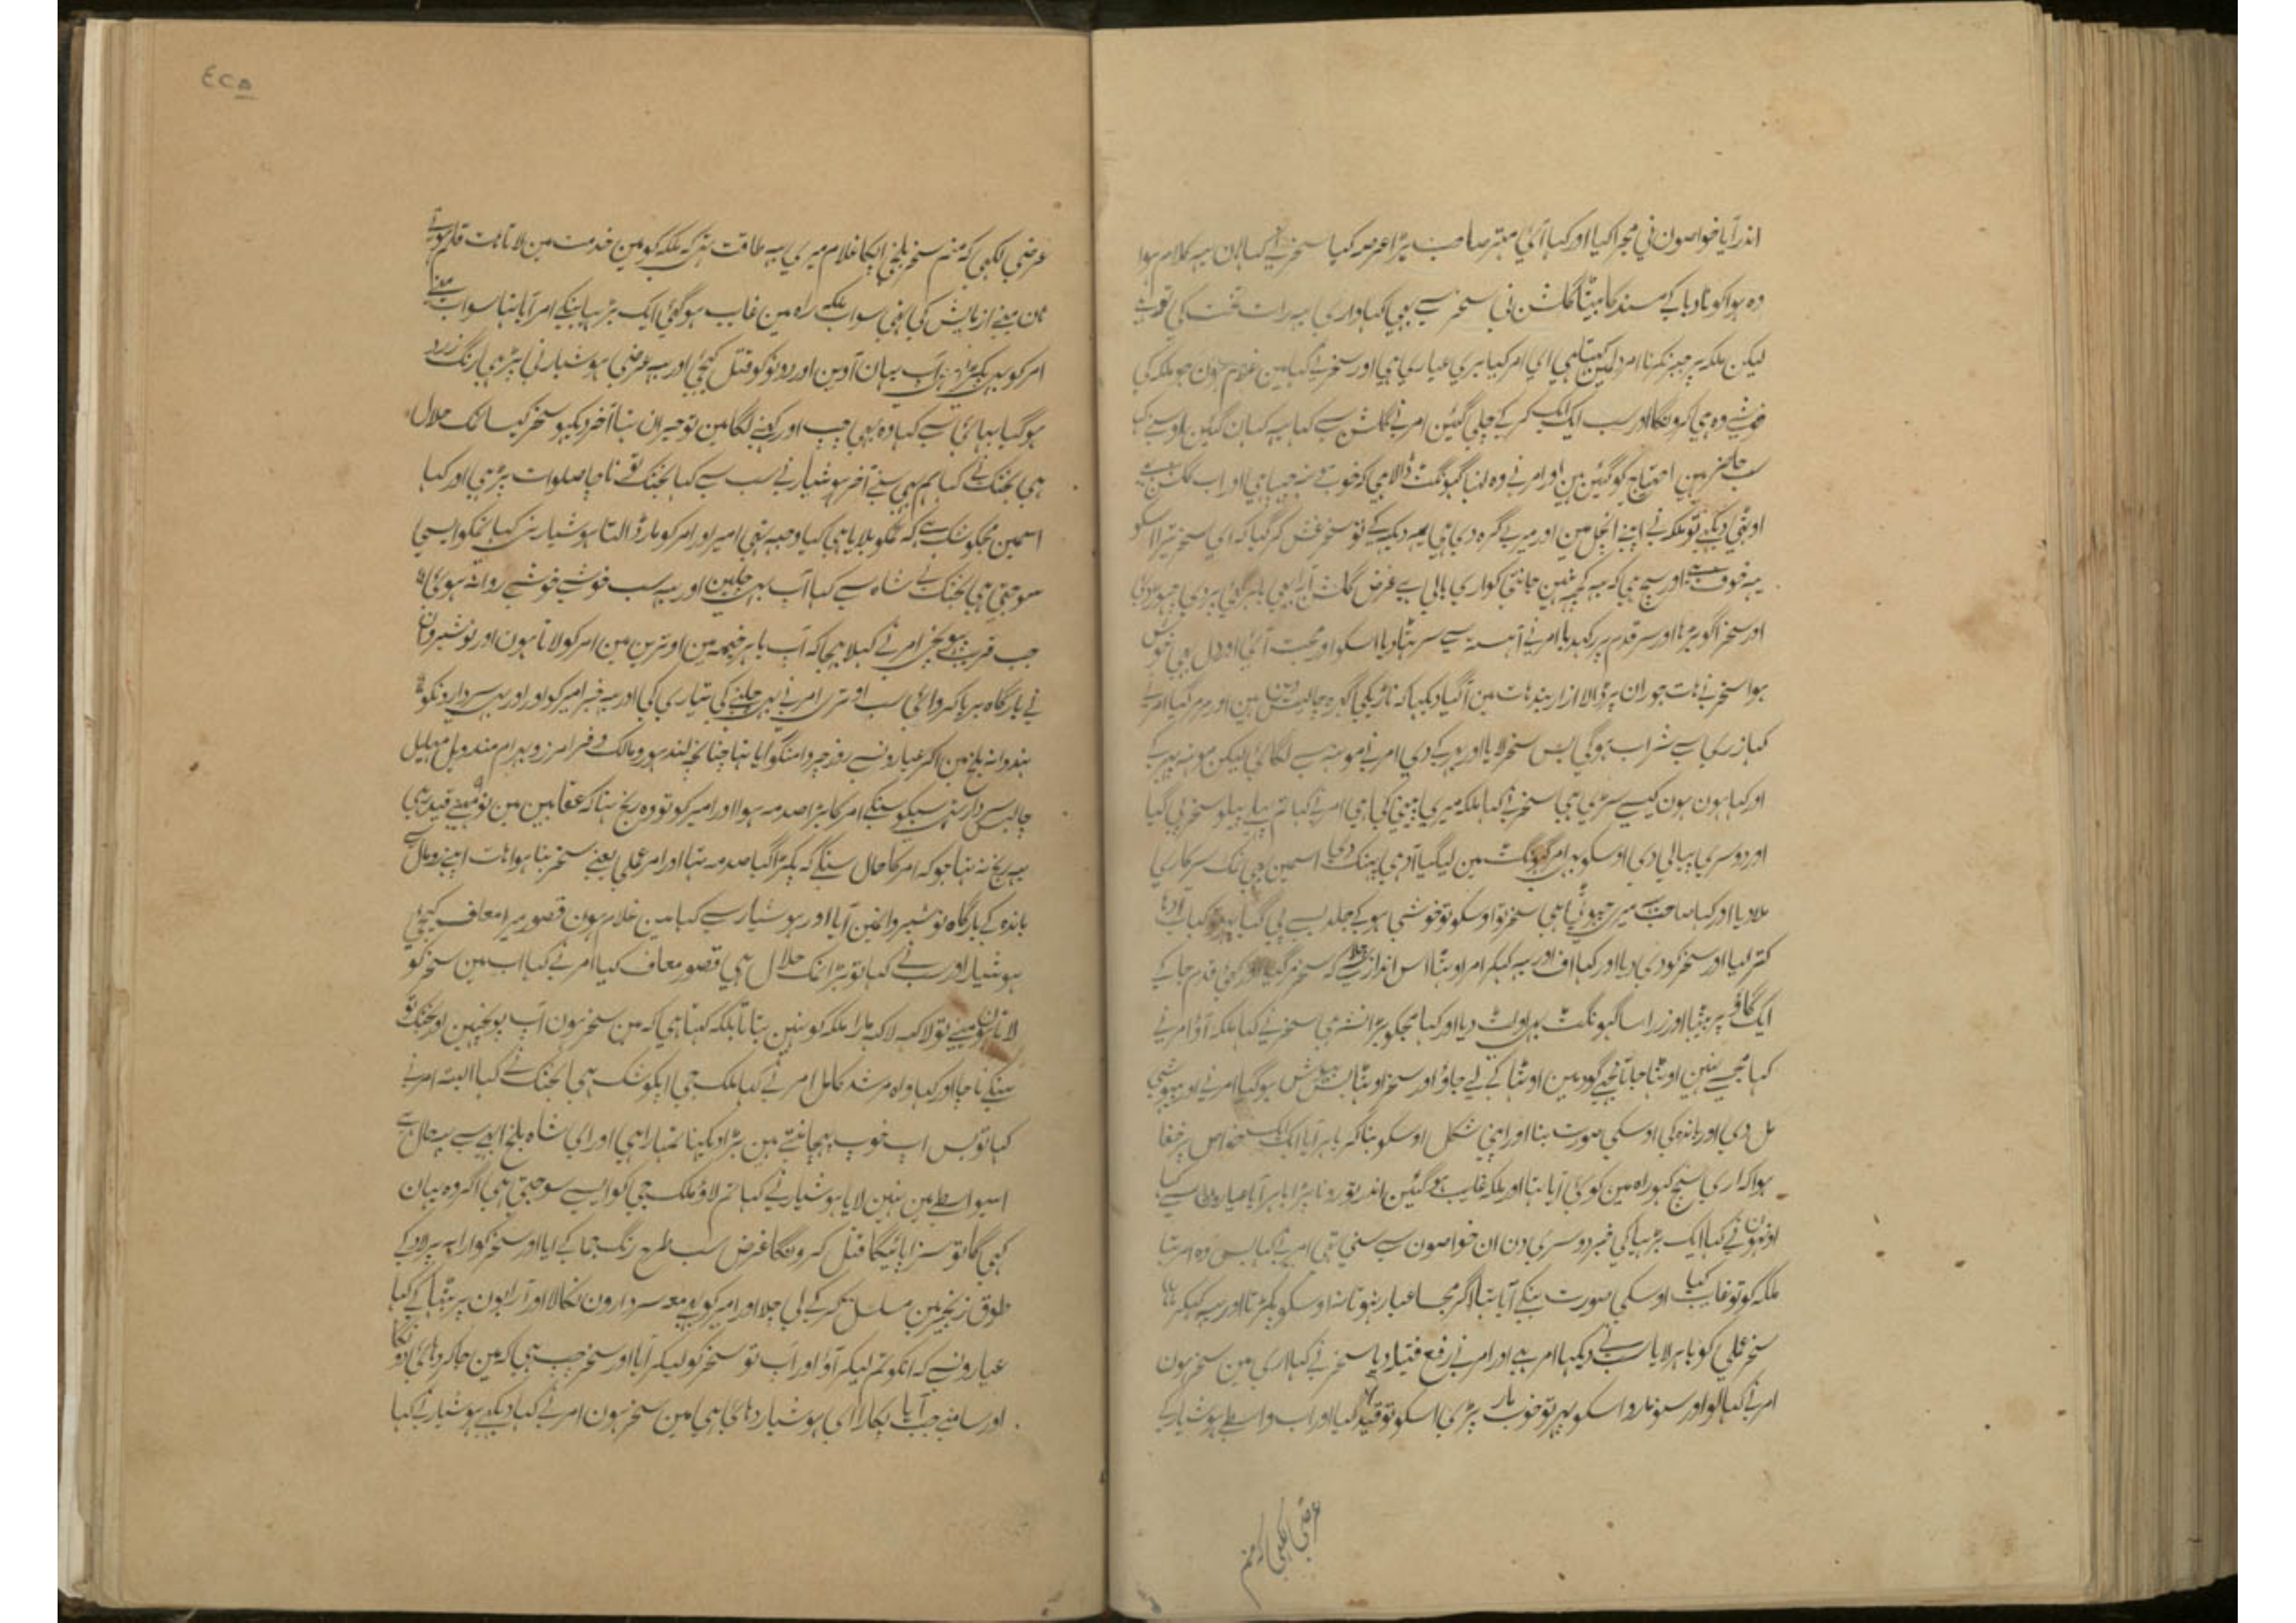 اندر آیا خواصون نی مجرا کیا اور کہا آئی مہتر صاحب بڑا عرصہ کیا سنجر نے کہا ہان یہ کلام ہوا
وہ ہوا کو نا دبا کے مسند کا بیٹا گلشن نی سنجر سے بھی کہا واری یہ رات تخت کی تو ہے
لیکن ملکہ پر جبر نکرنا امر دلمین کہتا ہی ای امر کیا بری عیاری ہی اور سنجر نے کہا مین غلام ہون جو ملکہ کی
خوشے وہ ہی کرونگا اور سب ایک ایک کر کے چلی گئین امر نے گلشن سے کہا یہ کہان گئین بلا و سے کہا
سب حاضر ہین احتیاج کو گئین ہین اور امر نے وہ لنبا گہونگٹ ڈالا ہی کہ خوب منہ چہپا ہی اور اب گلشن
اوٹھی دیکھے تو ملکہ نے اپنے انچل مین اور میرے گرہ دی ہی یہ دیکہہ کے تو سنجر غش کر گیا کہ ای سنجر تیرا اسکو
یہ خوف ہے اور سچ ہی کہ یہ کچہہ نہین جانتی کواری بالی ہے غرض گلشن آرا بھی باہر گئی پردی چھوڑ دی
اور سنجر اگو بڑہا اور سر قدم پر رکہدیا امر نے آہستہ سے سر ہٹا دیا اسکو اور محبت آئی اور دل بھی خوش
ہوا سنجر نے ہات جو ران پر ڈالا ازاربند ہات مین آگیا دیکہا کہ نزدیکی گرہ چالیس دین ہین اور مر گیا امر نے
کہا ذری سے شراب ہو گی بس سنجر لایا اور بہر کے دی امر نے مونہہ سے لگائی لیکن مونہہ پہیر کے
اور کہا ہون ہون کیسے سڑی ہی سنجر نے کہا ملکہ میری پینی کی ہی امر نے کہا تم پہلے پیلو سنجر پی گیا
اور دوسری پیالی دی اوسکو بہی امر گہونگٹ مین لیگیا آدہی پہنک دی اسمین ہی نمک سرکاری
ملادیا اور کہا صاحب میرے جہوٹی ہی سنجر تو اوسکو تو خوشی ہو کے جلد سے پی گیا کباب آدہا
کتر لیا اور سنجر کو دی دیا اور کہا اف اور یہ کہکر امر اوٹہا اس انداز سے چلا کہ سنجر مر گیا اور کئی قدم جا کے
ایک گاؤ پر بیٹہا اور ذرا سا گہونگٹ بہی اولٹ دیا اور کہا مجکو بڑا نشہ ہی سنجر نے کہا ملکہ آؤ امر نے
کہا مجہسے نہین اوٹہا جاتا مجہے گود مین اوٹہا کے لے جاؤ اور سنجر اوٹہا بس بیہوش ہو گیا امر نے اور بیہوشی
مل دی اور باندہ کی اوسکی صورت بنا اور اپنی شکل اوسکو بنا کہ باہر آیا ایک ایک خواص پر خفا
ہوا کہ اری سچ کہو راہ مین کوئی آیا تہا اور ملکہ غایب ہو گئین اندر تو رونا پڑا باہر آیا عیارون سے کہا
اونہون نے کہا ایک بڑہیا کی خبر دوسری دن ان خواصون سے سنی تہی امر نے کہا بس وہ امر تہا
ملکہ کو تو غایب کیا اوسکی صورت بنکے آیا تہا اگر مجسا عیار نہوتا نہ اوسکو پکڑتا اور یہ کہکر
سنجر عملی کو باہر لایا سب نے دیکہا امر ہے اور امر نے رفع فتیلہ دیا سنجر نے کہا اری مین سنجر ہون
امر نے کہا لو اور سنو مارو اسکو پہر تو خوب مار پڑی اسکو تو قید کیا اور اب واسطے ہوشیار کے
عرضی لکہی کہ منم
٤٢۵
عرضی لکہی کہ منم سنجر بلخی اپکا غلام میری یہ طاقت نہ تہی کہ ملکہ کو مین خدمت مین لاتا مت قلم ہوتے
ہان مینے ازمایش کی تہی سو اب ملکہ راہ مین غایب ہو گئی ایک بڑہیا بنکے امر آیا تہا سو اب مینے
امر کو بہی پکڑا ہی آپ یہان آوین اور دونو کو قتل کیجی اور یہ عرضی ہوشیار نی پڑہی یا رنگ زرد
ہو گیا بہائی سے کہا وہ بہی چپ اور کہنے لگا مین تو حیران تہا آخر دیکہو سنجر کیسا نمک حلال
ہی بختک نے کہا ہم بہی سنے آخر ہوشیار نے سب سے کہا بختک نے ناچا صلوات پڑہی اور کہا
اسمین مجکو شک ہے کہ تمکو بلایا ہی کیا وجہہ تہی امیر اور امر کو مار ڈالتا ہوشیار نے کہا تمکو ایسی
سوجہتی ہی بختک نے شاہ سے کہا آپ بہی چلین اور یہ سب خوشے خوشے روانہ ہوئی
جب قریب پہونچی امر نے کہلا بہیجا کہ آپ باہر خیمہ مین اوترین مین امر کو لاتا ہون اور نوشیروان
نے بارگاہ برپا کروائی سب اوتری امر نے بہی چلنے کی تیاری کی اور یہ خبر امیر کو اور اور بہی سردارونکو
ہندوانہ بلخ مین اکثر عیارونے روز چروا منگوایا تہا چنانچہ لندہور و مالک و فرامرز و بہرام مندویل مہلیل
چالیس سردار تہی سبکو سنکے امر کا بڑا صدمہ ہوا اور امیر کو تو وہ رنج تہا کہ عقابین مین نو مہینے قید رہی
یہ رنج نہ تہا جو کہ امر کا حال سنکے کہ پکڑا گیا صدمہ تہا اور امر عملی یعنے سنجر بنا ہوا ہات اپنے رومال سے
باندہ کے بارگاہ نوشیروانمین آیا اور ہوشیار سے کہا مین غلام ہون قصور میرا معاف کیجی
ہوشیار اور سب نے کہا تو بڑا نمک حلال ہی قصور معاف کیا امر نے کہا اب مین سنجر کو
لاتا ہون مینے تو لاکہہ لاکہہ مارا ملکہ کو نہین بتاتا بلکہ کہتا ہی کہ مین سنجر ہون آپ پوچہین اور بختک تو
سنکے ناچا اور کہا واہ مرشد کامل امر نے کہا ملک جی اپکو شک ہی بختک نے کہا البتہ امر نے
کہا تو بس اب خوب پہچانتے ہین بڑا دیکہنا تمہارا ہی اور ای شاہ بلخ ابہی سے یہ حال ہے
اسواسطے مین نہین لایا ہوشیار نے کہا تم لاؤ ملک جی کو ایسے سوجہتی ہی اگر وہ بیان
کہی گا تو سزا پائیگا قتل کرونگا غرض سب طرح رنگ جما کے آیا اور سنجر کو ارابہ پر لاد کے
طوق زنجیر مین مسلسل کر کے لی چلا اور امیر کو بہی معہ سردارون نکالا اور آرابون پر بیٹہا کے کہا
عیارونسے کہ انکو تم لیکر آؤ اور آپ تو سنجر کو لیکر آیا اور سنجر چپ ہی کہ مین جا کر دہائی دونگا
اور سامنے جب آیا پکارا ای ہوشیار دہائی ہی مین سنجر ہون امر نے کہا دیکہے ہوشیار نے کہا